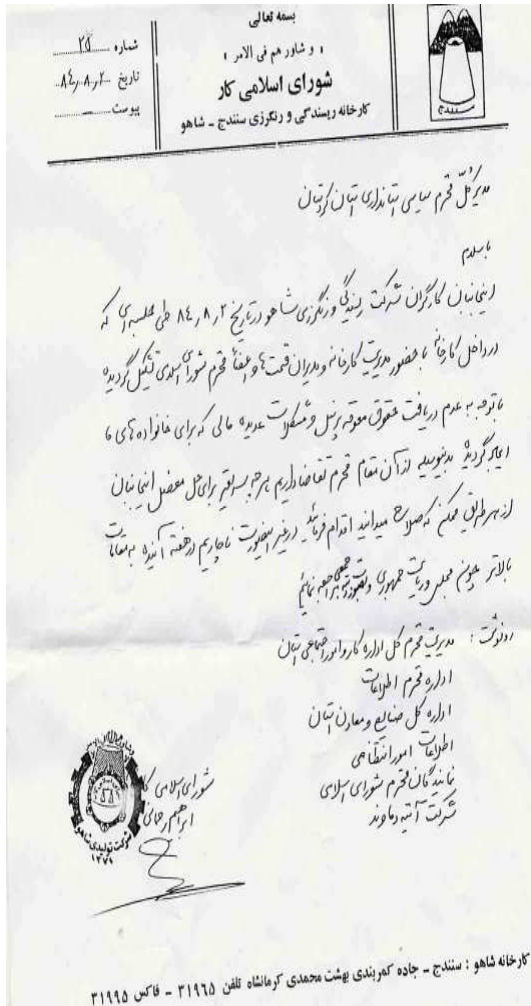 بسمه تعالی
« و شاور هم فی الامر »
شورای اسلامی کار
کارخانه ریسندگی و رنگرزی سنندج ـ شاهو
شماره ۲۵
تاریخ ۸۴٫۸٫۲
پیوست ــ
سنندج
مدیر کل محترم سیاسی استانداری استان کردستان
با سلام
اینجانبان کارگران شرکت ریسندگی و رنگرزی شاهو در تاریخ ۸۴٫۸٫۲ طی جلسه ای که
در داخل کارخانه با حضور مدیریت کارخانه و مدیران قسمت ها و اعضاء محترم شورای اسلامی تشکیل گردیده
با توجه به عدم دریافت حقوق معوقه پرسنل و مشکلات عدیده مالی که برای خانواده های ما
ایجاد گردیده بدینوسیله از آن مقام محترم تقاضا داریم هر چه سریعتر برای حل معضل اینجانبان
از هر طریق ممکن که صلاح میدانید اقدام فرمائید در غیر اینصورت ناچاریم در هفته آینده به مقامات
بالاتر چون مجلس و ریاست جمهوری بصورت جمعی مراجعه نمائیم
رونوشت : مدیریت محترم کل اداره کار و امور اجتماعی استان
اداره محترم اطلاعات
اداره کل صنایع و معادن استان
اطلاعات امور انتظامی
نمایندگان محترم شورای اسلامی
شرکت آتیه دماوند
شورای اسلامی کار
ابراهیم رجائی
شرکت تولیدی شاهو
۱۳۷۹
کارخانه شاهو : سنندج ـ جاده کمربندی بهشت محمدی کرمانشاه تلفن ۳۱۹۶۵ ـ فاکس ۳۱۹۹۵